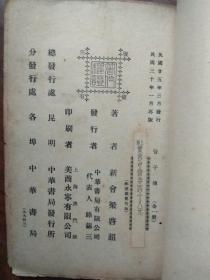 民國廿五年三月發行
民國三十年一月再版
管子傳（全一冊）
著者 新會梁啓超
發行者 中華書局有限公司
代表人 路錫三
印刷者 上海澳門路
美商永寧有限公司
總發行處 昆明 中華書局發行所
分發行處 各埠 中華書局